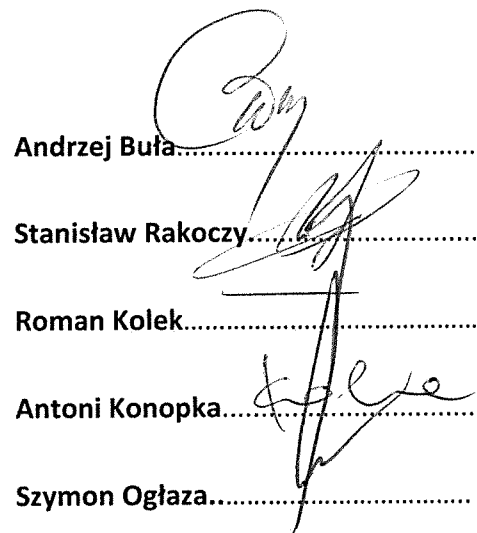 Andrzej Buła..........................................
Stanisław Rakoczy................................
Roman Kolek.........................................
Antoni Konopka...................................
Szymon Ogłaza.....................................